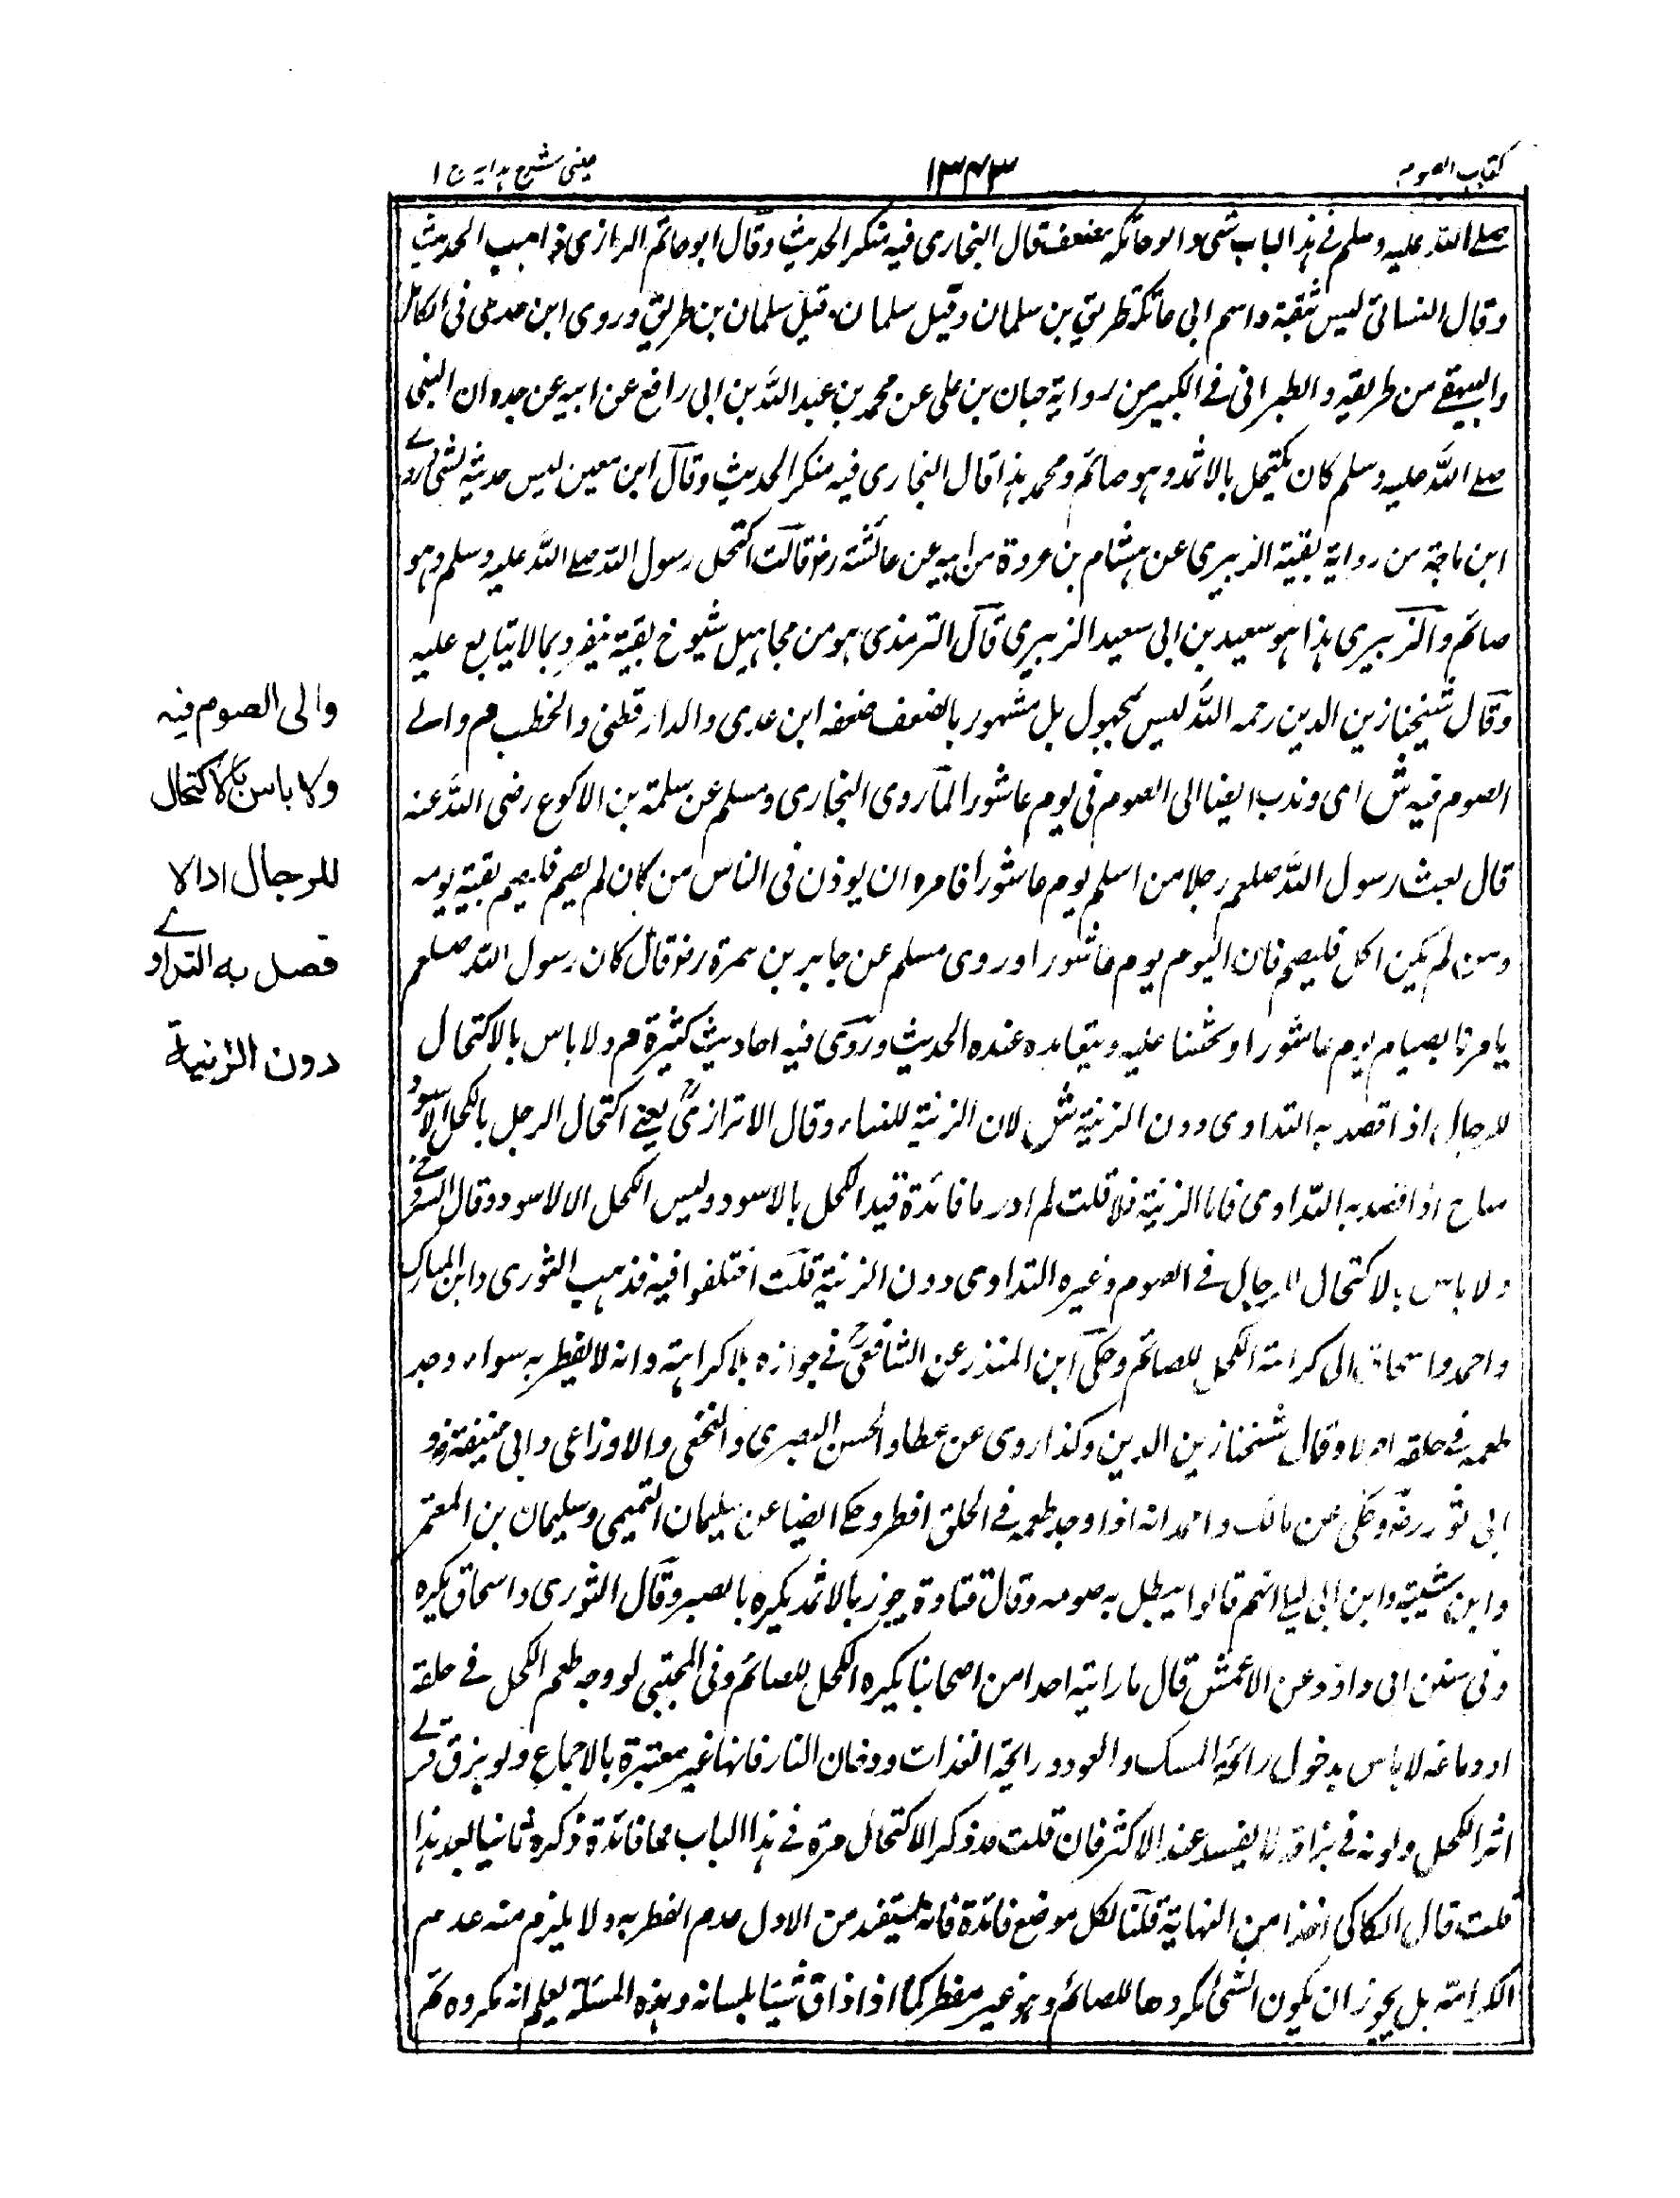 كتاب الصوم
١٣٤٣
عينى شرح هدايه ج ١
صلے الله عليه وسلم فے هذا الباب شئ وابو عاتكه مضعف قال البخارى فيه منكر الحديث وقال ابو حاتم الرازى ذاهب الحديث
وقال النسائى ليس بثقة واسم ابى عاتكة طريق بن سلمان وقيل سلمان وقيل سلمان بن طريق وروى ابن عدى فى الكامل
والبيهقے من طريقه والطبرانى فے الكبير من رواية حبان بن على عن محمد بن عبد الله بن ابى رافع عن ابيه عن جده ان النبى
صلے الله عليه وسلم كان يكتحل بالاثمد وهو صائم ومحمد هذا قال البخارى فيه منكر الحديث وقال ابن معين ليس حديثه بشئ روے
ابن ماجة من رواية بقية الزبيرى عن هشام بن عروة عن ابيه عن عائشة رض قالت اكتحل رسول الله صلے الله عليه وسلم وهو
صائم والزبيرى هذا هو سعيد بن ابى سعيد الزبيرى قال الترمذى هو من مجاهيل شيوخ بقية ينفرد بما لا يتابع عليه
وقال شيخنا زين الدين رحمه الله ليس بمجهول بل مشهور بالضعف ضعفه ابن عدى والدارقطنى والخطيب م والے
الصوم فيه ش اى وندب ايضا الى الصوم فى يوم عاشورا لما روى البخارى ومسلم عن سلمة بن الاكوع رضى الله عنه
قال بعث رسول الله صلعم رجلا من اسلم يوم عاشورا فامره ان يوذن فى الناس من كان لم يصم فليصم بقية يومه
ومن لم يكن اكل فليصم فان اليوم يوم عاشورا وروى مسلم عن جابر بن سمرة رض قال كان رسول الله صلعم
يامرنا بصيام يوم عاشورا ويحثنا عليه ويتعاهده عنده الحديث وروى فيه احاديث كثيرة م ولا باس بالاكتحال
للرجال اذا قصد به التداوى دون الزينة ش لان الزينة للنساء وقال الاترازى رح يعنے اكتحال الرجل بالكحل الاسود
مباح اذا قصد به التداوى فاما الزينة فلا قلت لم ادر ما فائدة قيد الكحل بالاسود وليس الكحل الا الاسود وقال
ولا باس بالاكتحال للرجال فے الصوم وغيره التداوى دون الزينة قلت اختلفوا فيه فذهب الثورى وابن المبارك
واحمد واسحاق الى كراهة الكحل للصائم وحكى ابن المنذر عن الشافعى رح فے جوازه بلا كراهة وانه لا يفطر به سواء وجد
طعمه فے حلقه ام لا وقال شيخنا زين الدين وكذا روى عن عطا والحسن البصرى والنخعى والاوزاعى وابى حنيفة رض و
ابى ثور رض وحكى عن مالك واحمد انه اذا وجد طعمه فے الحلق افطر وحكے ايضا عن سليمان التميمى وسليمان بن المعتمر
وابن شيبة وابن ابى ليلے انهم قالوا يبطل به صومه وقال قتادة يجوز بالاثمد يكره بالصبر وقال الثورى واسحاق يكره
وفى سنن ابى داؤد عن الاعمش قال ما رايت احدا من اصحابنا يكره الكحل للصائم وفى المجتبى لو وجد طعم الكحل فے حلقه
او دماغه لا باس بدخول رائحة المسك والعود ورائحة ودخان النار فانها غير معتبرة بالاجماع ولو بزق
اثر الكحل ولونه فے بزاقه لا يفسد عند الاكثر فان قلت قد ذكر الاكتحال مرة فے هذا الباب فما فائدة ذكره ثانيا بعد هذا
قلت قال الكاكى اخذا من النهاية قلنا لكل موضع فائدة فانه يستفد من الاول عدم الفطر به ولا يلزم منه عدم
الكراهة بل يجوز ان يكون الشئ مكروها للصائم وهو غير مفطر كما اذا ذاق شيئا بلسانه وهذه المسئلة يعلم انه مكروه ثم
والى الصوم فيه
ولا باس بالاكتحال
للرجال اذا لا
قصد به التداوے
دون الزنية